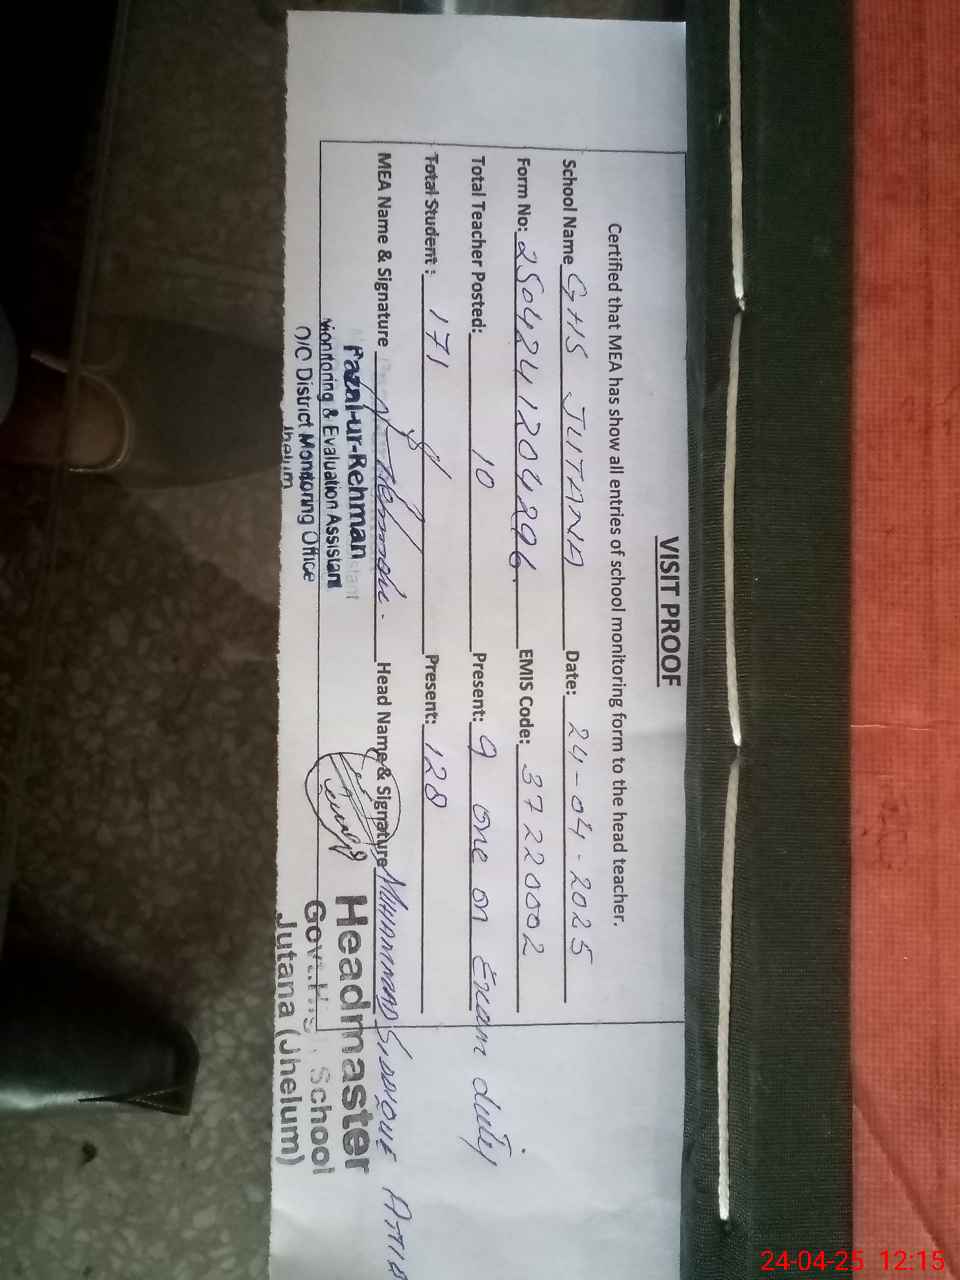 VISIT PROOF
Certified that MEA has show all entries of school monitoring form to the head teacher.
School Name GHS JUTANA Date: 24-04-2025
Form No: 2504241204296 EMIS Code: 37220002
Total Teacher Posted: 10 Present: 9 one on Exam duty
Total Student : 171 Present: 128
MEA Name & Signature Head Name & Signature MUHAMMAD SIDDIQUE
Fazal-ur-Rehman
Monitoring & Evaluation Assistant
O/C District Monitoring Office
Jhelum
Headmaster
Govt. High School
Jutana (Jhelum)
24-04-25 12:15